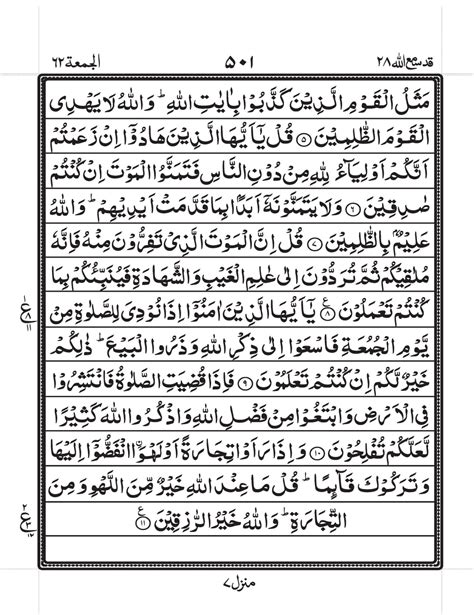 قد سمع الله ٢٨
٥٠١
الجمعة ٦٢
مَثَلُ الْقَوْمِ الَّذِيْنَ كَذَّبُوْا بِاٰيٰتِ اللّٰهِ ؕ وَاللّٰهُ لَا يَهْدِى
الْقَوْمَ الظّٰلِمِيْنَ ۝٥ قُلْ يٰۤاَيُّهَا الَّذِيْنَ هَادُوْۤا اِنْ زَعَمْتُمْ
اَنَّكُمْ اَوْلِيَآءُ لِلّٰهِ مِنْ دُوْنِ النَّاسِ فَتَمَنَّوُا الْمَوْتَ اِنْ كُنْتُمْ
صٰدِقِيْنَ ۝٦ وَلَا يَتَمَنَّوْنَهٗۤ اَبَدًۢا بِمَا قَدَّمَتْ اَيْدِيْهِمْ ؕ وَاللّٰهُ
عَلِيْمٌۢ بِالظّٰلِمِيْنَ ۝٧ قُلْ اِنَّ الْمَوْتَ الَّذِىْ تَفِرُّوْنَ مِنْهُ فَاِنَّهٗ
مُلٰقِيْكُمْ ثُمَّ تُرَدُّوْنَ اِلٰى عٰلِمِ الْغَيْبِ وَالشَّهَادَةِ فَيُنَبِّئُكُمْ بِمَا
كُنْتُمْ تَعْمَلُوْنَ ۝٨ يٰۤاَيُّهَا الَّذِيْنَ اٰمَنُوْۤا اِذَا نُوْدِىَ لِلصَّلٰوةِ مِنْ
يَّوْمِ الْجُمُعَةِ فَاسْعَوْا اِلٰى ذِكْرِ اللّٰهِ وَذَرُوا الْبَيْعَ ؕ ذٰلِكُمْ
خَيْرٌ لَّكُمْ اِنْ كُنْتُمْ تَعْلَمُوْنَ ۝٩ فَاِذَا قُضِيَتِ الصَّلٰوةُ فَانْتَشِرُوْا
فِى الْاَرْضِ وَابْتَغُوْا مِنْ فَضْلِ اللّٰهِ وَاذْكُرُوا اللّٰهَ كَثِيْرًا
لَّعَلَّكُمْ تُفْلِحُوْنَ ۝١٠ وَاِذَا رَاَوْا تِجَارَةً اَوْ لَهْوَا۟ ۨانْفَضُّوْۤا اِلَيْهَا
وَتَرَكُوْكَ قَآئِمًا ؕ قُلْ مَا عِنْدَ اللّٰهِ خَيْرٌ مِّنَ اللَّهْوِ وَمِنَ
التِّجَارَةِ ؕ وَاللّٰهُ خَيْرُ الرّٰزِقِيْنَ ۝١١
منزل ٧